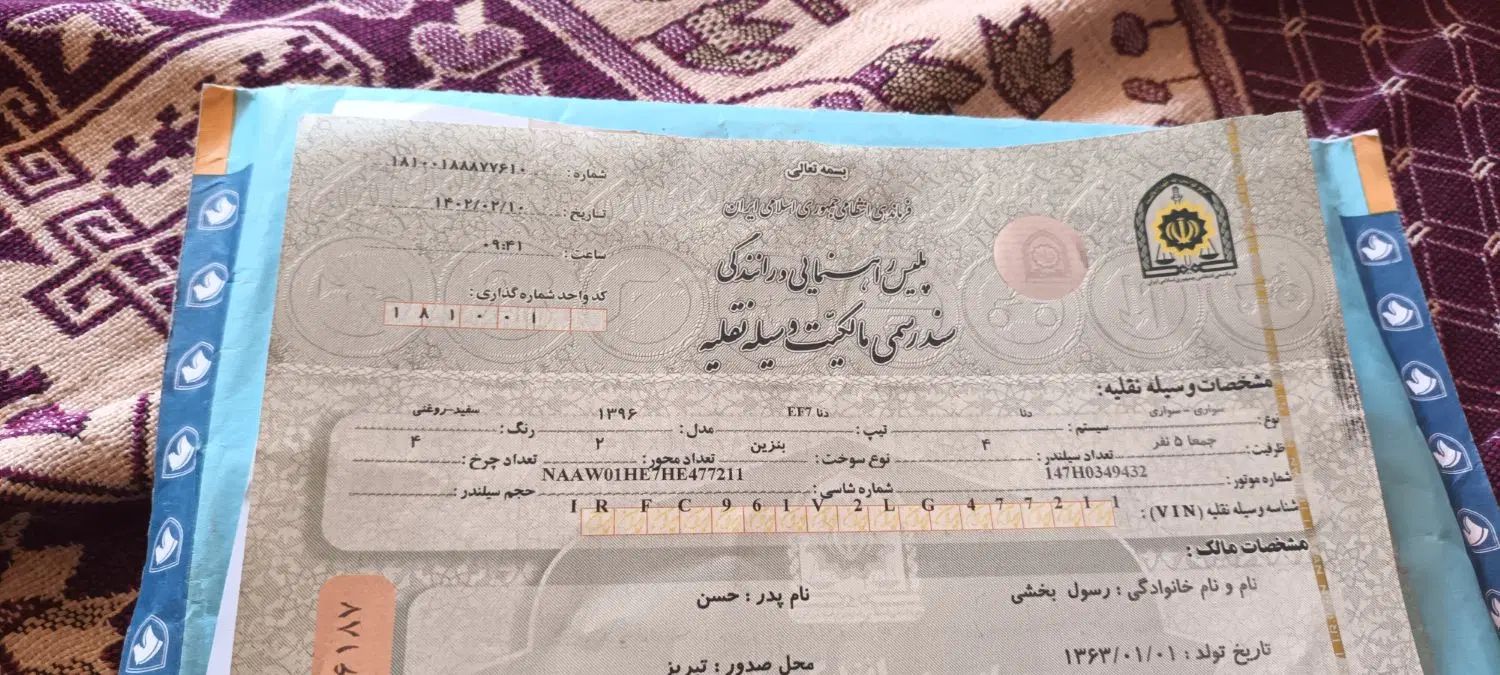 بسمه تعالی
فرماندهی انتظامی جمهوری اسلامی ایران
پلیس راهنمایی و رانندگی
سند رسمی مالکیت وسیله نقلیه
شماره: ۱۸۱۰۰۱۸۸۸۷۷۶۱۰
تاریخ: ۱۴۰۲/۰۲/۱۰
ساعت: ۰۹:۴۱
کد واحد شماره گذاری:
۱ ۸ ۱ ۰ ۰ ۱
مشخصات وسیله نقلیه:
نوع: سواری - سواری سیستم: دنا تیپ: دنا EF7 مدل: ۱۳۹۶ رنگ: سفید-روغنی
ظرفیت: جمعا ۵ نفر تعداد سیلندر: ۴ نوع سوخت: بنزین تعداد محور: ۲ تعداد چرخ: ۴
شماره موتور: 147H0349432 شماره شاسی: NAAW01HE7HE477211 حجم سیلندر:
شناسه وسیله نقلیه (VIN): I R F C 9 6 1 V 2 L G 4 7 7 2 1 1
مشخصات مالک:
نام و نام خانوادگی: رسول بخشی نام پدر: حسن
تاریخ تولد: ۱۳۶۳/۰۱/۰۱ محل صدور: تبریز